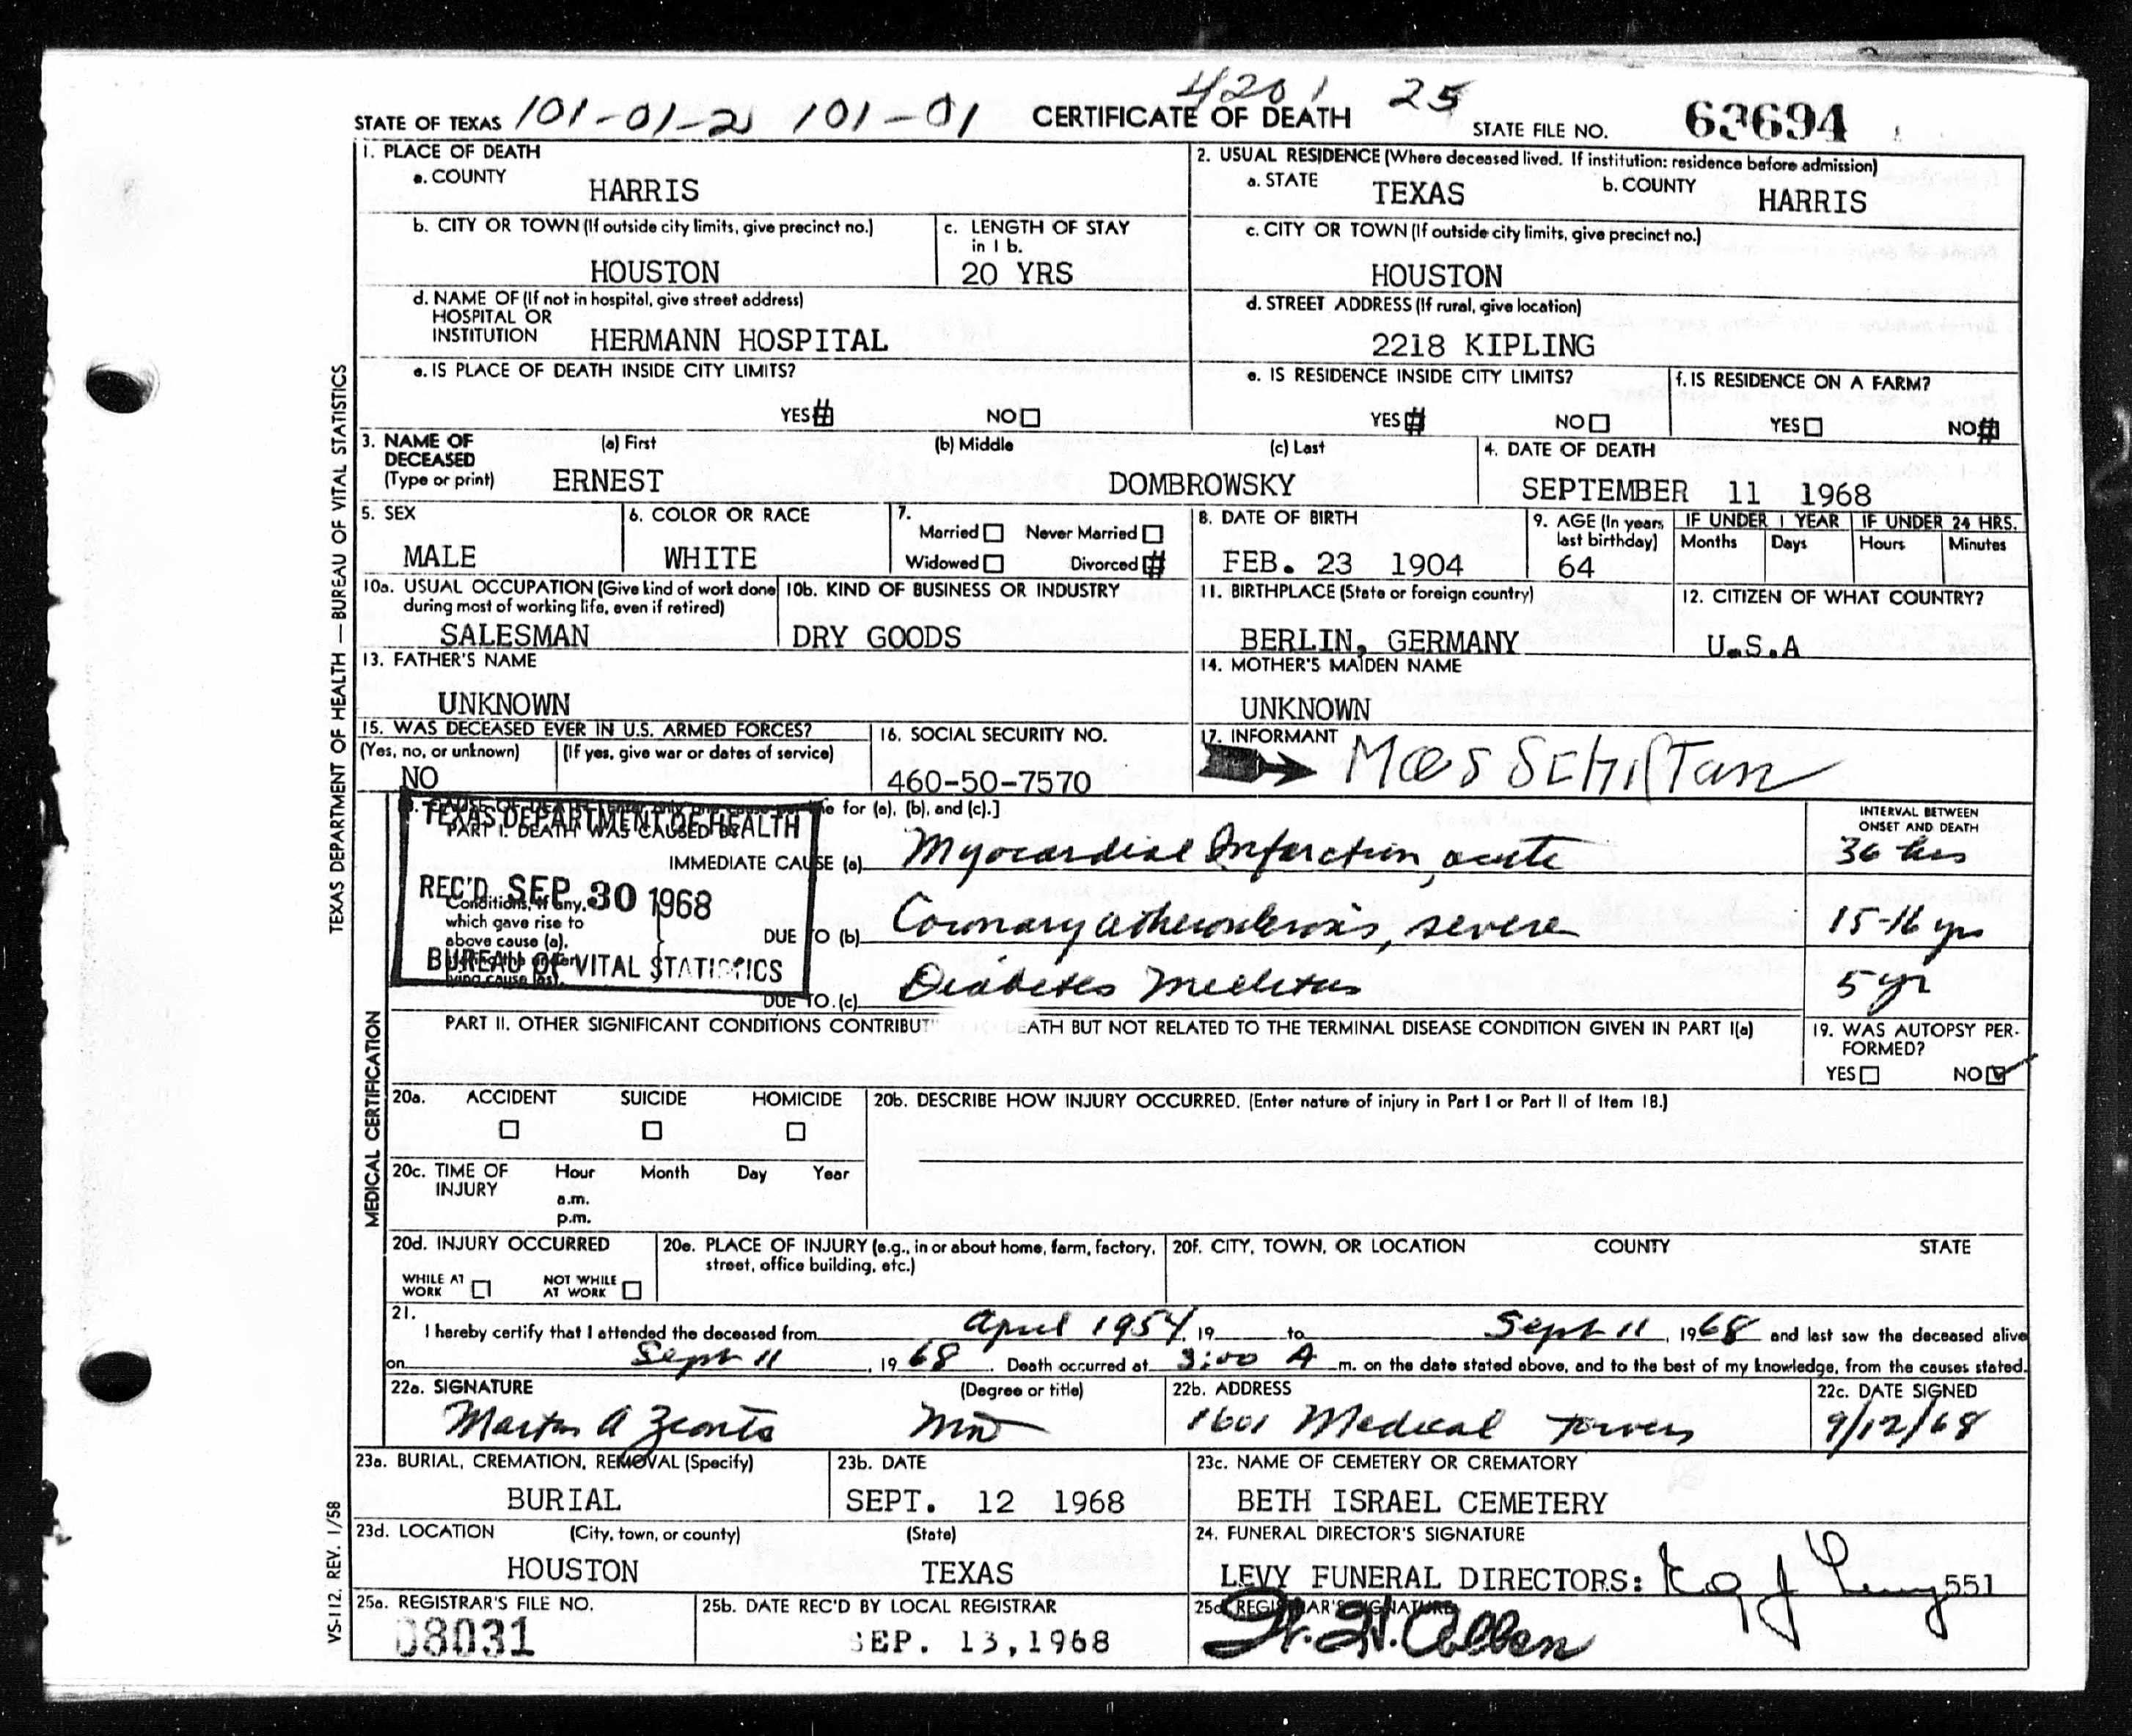 4201 25
STATE OF TEXAS 101-01-2 101-01 CERTIFICATE OF DEATH STATE FILE NO. 63694
1. PLACE OF DEATH
a. COUNTY
HARRIS
2. USUAL RESIDENCE (Where deceased lived. If institution: residence before admission)
a. STATE TEXAS b. COUNTY HARRIS
b. CITY OR TOWN (If outside city limits, give precinct no.)
HOUSTON
c. LENGTH OF STAY
in 1 b.
20 YRS
c. CITY OR TOWN (If outside city limits, give precinct no.)
HOUSTON
d. NAME OF (If not in hospital, give street address)
HOSPITAL OR
INSTITUTION HERMANN HOSPITAL
d. STREET ADDRESS (If rural, give location)
2218 KIPLING
e. IS PLACE OF DEATH INSIDE CITY LIMITS?
YES NO
e. IS RESIDENCE INSIDE CITY LIMITS?
YES NO
f. IS RESIDENCE ON A FARM?
YES NO
3. NAME OF
DECEASED
(Type or print)
(a) First (b) Middle (c) Last
ERNEST DOMBROWSKY
4. DATE OF DEATH
SEPTEMBER 11 1968
5. SEX
MALE
6. COLOR OR RACE
WHITE
7.
Married Never Married
Widowed Divorced
8. DATE OF BIRTH
FEB. 23 1904
9. AGE (In years
last birthday)
64
IF UNDER 1 YEAR IF UNDER 24 HRS.
Months Days Hours Minutes
10a. USUAL OCCUPATION (Give kind of work done
during most of working life, even if retired)
SALESMAN
10b. KIND OF BUSINESS OR INDUSTRY
DRY GOODS
11. BIRTHPLACE (State or foreign country)
BERLIN, GERMANY
12. CITIZEN OF WHAT COUNTRY?
U.S.A
13. FATHER'S NAME
UNKNOWN
14. MOTHER'S MAIDEN NAME
UNKNOWN
15. WAS DECEASED EVER IN U.S. ARMED FORCES?
(Yes, no, or unknown) (If yes, give war or dates of service)
NO
16. SOCIAL SECURITY NO.
460-50-7570
17. INFORMANT
for (a), (b), and (c).]
INTERVAL BETWEEN
ONSET AND DEATH
TEXAS DEPARTMENT OF HEALTH
PART I. DEATH WAS CAUSED BY
IMMEDIATE CAUSE (a) Myocardial Infarction, acute 36 hrs
REC'D SEP 30 1968
Conditions, if any,
which gave rise to
above cause (a),
DUE TO (b) Coronary atherosclerosis, severe 15-16 yrs
BUREAU OF VITAL STATISTICS
lying cause last.
DUE TO (c) Diabetes Mellitus 5 yr
PART II. OTHER SIGNIFICANT CONDITIONS CONTRIBUT EATH BUT NOT RELATED TO THE TERMINAL DISEASE CONDITION GIVEN IN PART I(a)
19. WAS AUTOPSY PER-
FORMED?
YES NO
20a. ACCIDENT SUICIDE HOMICIDE
20b. DESCRIBE HOW INJURY OCCURRED. (Enter nature of injury in Part I or Part II of Item 18.)
20c. TIME OF
INJURY
Hour Month Day Year
a.m.
p.m.
20d. INJURY OCCURRED
WHILE AT
WORK
NOT WHILE
AT WORK
20e. PLACE OF INJURY (e.g., in or about home, farm, factory,
street, office building, etc.)
20f. CITY, TOWN, OR LOCATION COUNTY STATE
21.
I hereby certify that I attended the deceased from April 1954, 19 to Sept 11, 1968 and last saw the deceased alive
on Sept 11, 1968. Death occurred at 3:00 A m. on the date stated above, and to the best of my knowledge, from the causes stated.
22a. SIGNATURE (Degree or title)
Martin A MD
22b. ADDRESS
1601 Medical Towers
22c. DATE SIGNED
9/12/68
23a. BURIAL, CREMATION, REMOVAL (Specify)
BURIAL
23b. DATE
SEPT. 12 1968
23c. NAME OF CEMETERY OR CREMATORY
BETH ISRAEL CEMETERY
23d. LOCATION (City, town, or county) (State)
HOUSTON TEXAS
24. FUNERAL DIRECTOR'S SIGNATURE
LEVY FUNERAL DIRECTORS: 551
25a. REGISTRAR'S FILE NO.
08031
25b. DATE REC'D BY LOCAL REGISTRAR
SEP. 13, 1968
25c. REGISTRAR'S SIGNATURE
TEXAS DEPARTMENT OF HEALTH — BUREAU OF VITAL STATISTICS
MEDICAL CERTIFICATION
VS-112, REV. 1/58